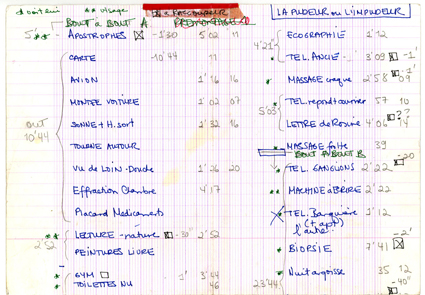 * à obtenir ** visage
BOUT à BOUT A
LA PUDEUR ou L'IMPUDEUR
5' ** APOSTROPHES -1'30 5'02 11
CARTE -10'44 11
AVION 1'16 16
MONTEE VOITURE 1'02 07
SONNE + H. sort 1'32 16
OUT 10'44
TOURNE AUTOUR
VUE DE LOIN - Douche 1'26 20
Effraction Chambre 4'17
Placard Médicaments
** LECTURE - nature -30" 2'52
2'52
PEINTURES LIVRE
* GYM 1' 3'44
* TOILETTES NU 46
4'21" ECOGRAPHIE 1'12
* TEL. ANCIE 3'09 -1'
* MASSAGE craque 2'58 09
5'03" * TEL. repond tourner 57 10
LETTRE de Rosine 4'06 14
** MASSAGE folte 39
BOUT A BOUT B
* TEL. GANGLIONS 2'22 -20
** MACHINE à ECRIRE 2'22
* TEL. Barquière 1'12
(+ apt)
l'autre
* BIOPSIE 7'41 -2'
* Nuit angoisse 35 12
23'44 -40"